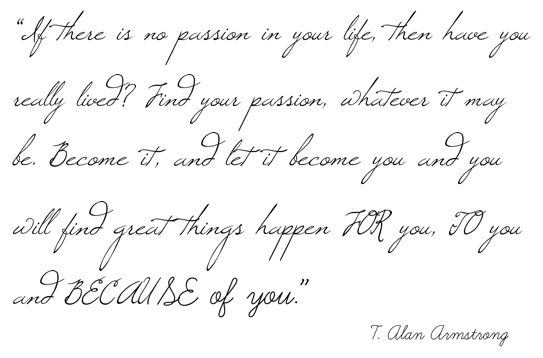 “If there is no passion in your life, then have you
really lived? Find your passion, whatever it may
be. Become it, and let it become you and you
will find great things happen FOR you, TO you
and BECAUSE of you.”
T. Alan Armstrong